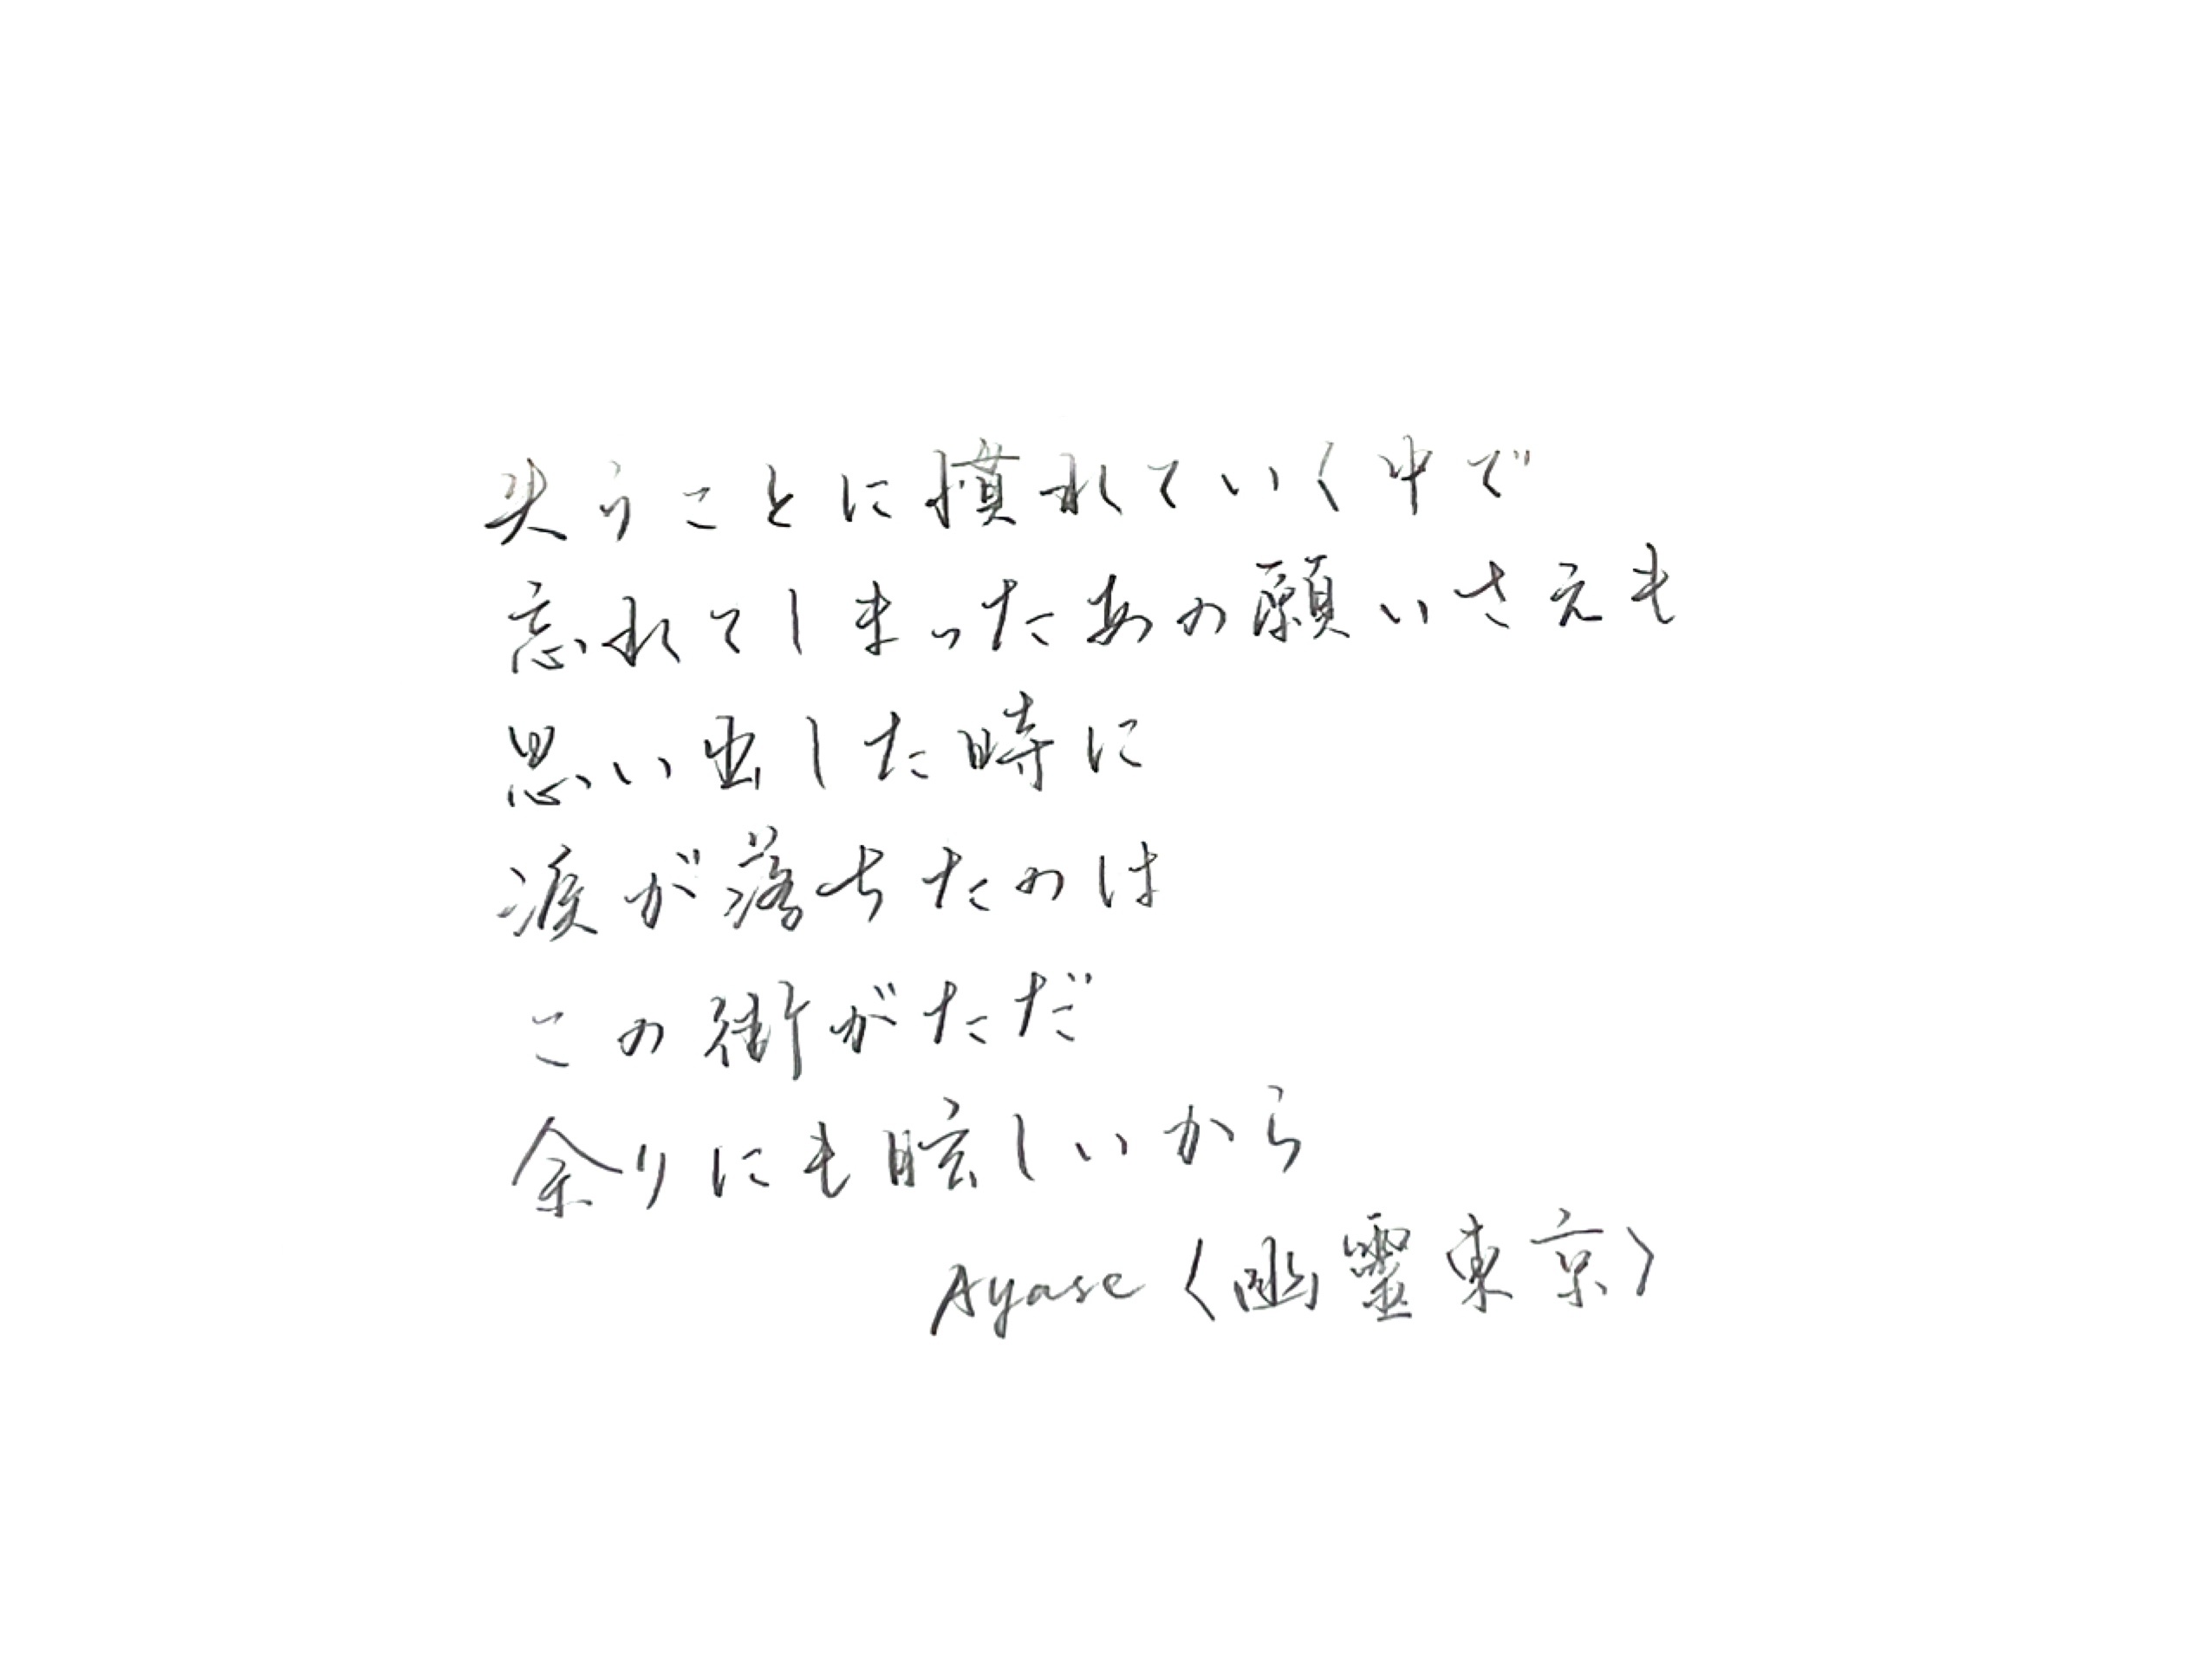 失うことに慣れていく中で
忘れてしまったあの願いさえも
思い出した時に
涙が落ちたのは
この街がただ
余りにも眩しいから
Ayase〈幽靈東京〉